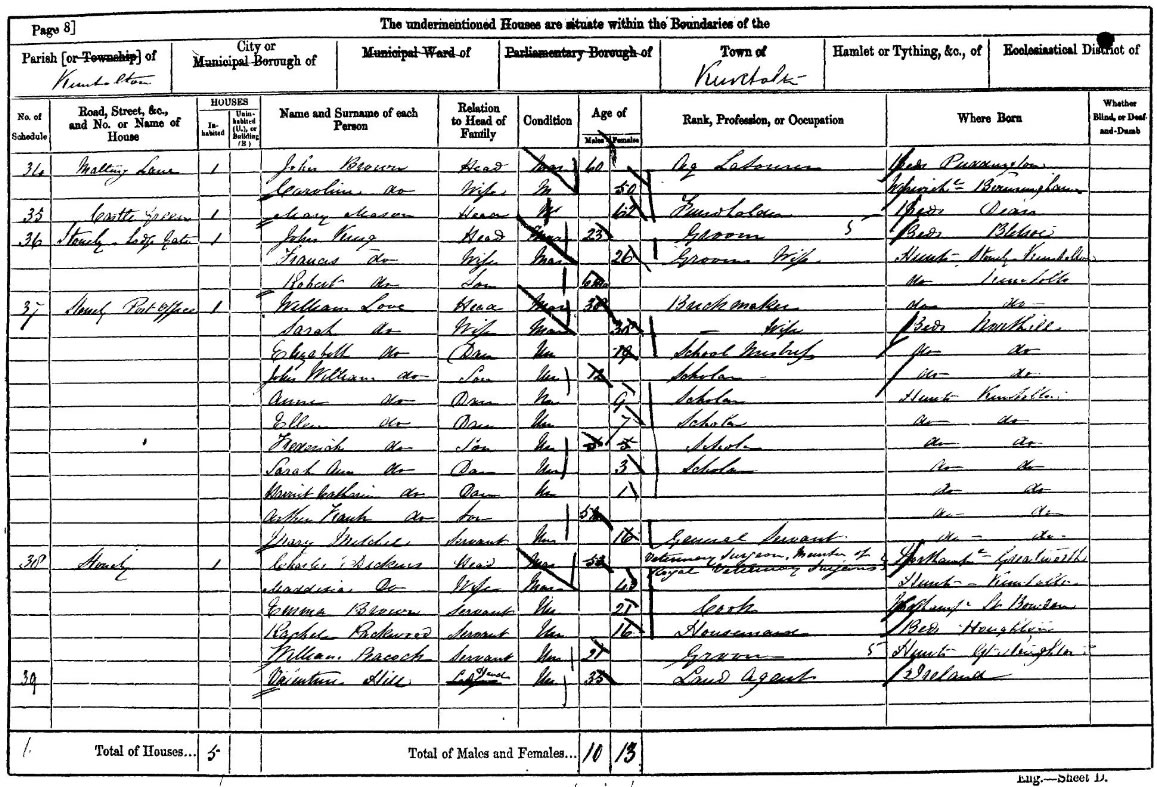 Page 8]
The undermentioned Houses are situate within the Boundaries of the
Parish [or Township] of
City or
Municipal Borough of
Municipal Ward of
Parliamentary Borough of
Town of
Hamlet or Tything, &c., of
Ecclesiastical District of
Kimbolton
Kimbolton
No. of Schedule
Road, Street, &c., and No. or Name of House
HOUSES
Inhabited
Uninhabited (U.), or Building (B)
Name and Surname of each Person
Relation to Head of Family
Condition
Age of
Males
Females
Rank, Profession, or Occupation
Where Born
Whether Blind, or Deaf-and-Dumb
34 Malting Lane 1 John Brown Head Mar 60 Ag Labourer Beds Puddington
Caroline do Wife M 50 Birmingham
35 Castle Green 1 Mary Mason Head W 62 Beds Dean
36 Stonely Lodge Gate 1 John King Head Mar 23 Groom Beds Bletsoe
Frances do Wife Mar 26 Grooms Wife Hunts Stonely Kimbolton
Robert do Son do Kimbolton
37 Stonely Post Office 1 William Love Head Mar 38 Brickmaker do do
Sarah do Wife Mar 38 Wife Beds
Elizabeth do Daur Un 19 School Mistress do do
John William do Son Un 12 Scholar do do
Anne do Daur Un 9 Scholar Hunts Kimbolton
Ellen do Daur Un 7 Scholar do do
Frederick do Son Un 5 Scholar do do
Sarah Ann do Daur Un 3 Scholar do do
Harriet Catharine do Daur Un 1 do do
Arthur Frank do Son do do
Mary Mitchel Servant Un 16 General Servant do do
38 Stonely 1 Charles Dickens Head Mar 53 Veterinary Surgeon, Member of Royal Veterinary Surgeons Northampt Greatworth
Do Wife Mar Hunts Kimbolton
Emma Brown Servant Un 21 Cook
Rachel Packwood Servant Un 16 Housemaid Beds Houghton
William Peacock Servant Un 21 Groom Hunts
39 Hill Head Un 35 Land Agent Ireland
1
Total of Houses... 5
Total of Males and Females... 10 13
Eng.—Sheet D.